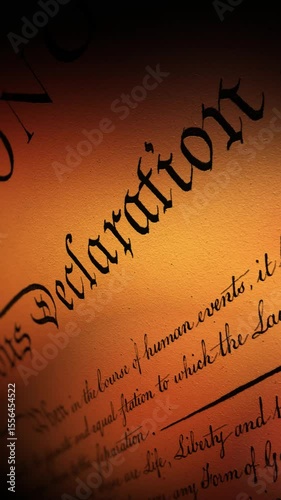 NO
ous Declaration
When in the Course of human events, it
and equal station to which the La
the separation.
are Life, Liberty and t
any Form of G